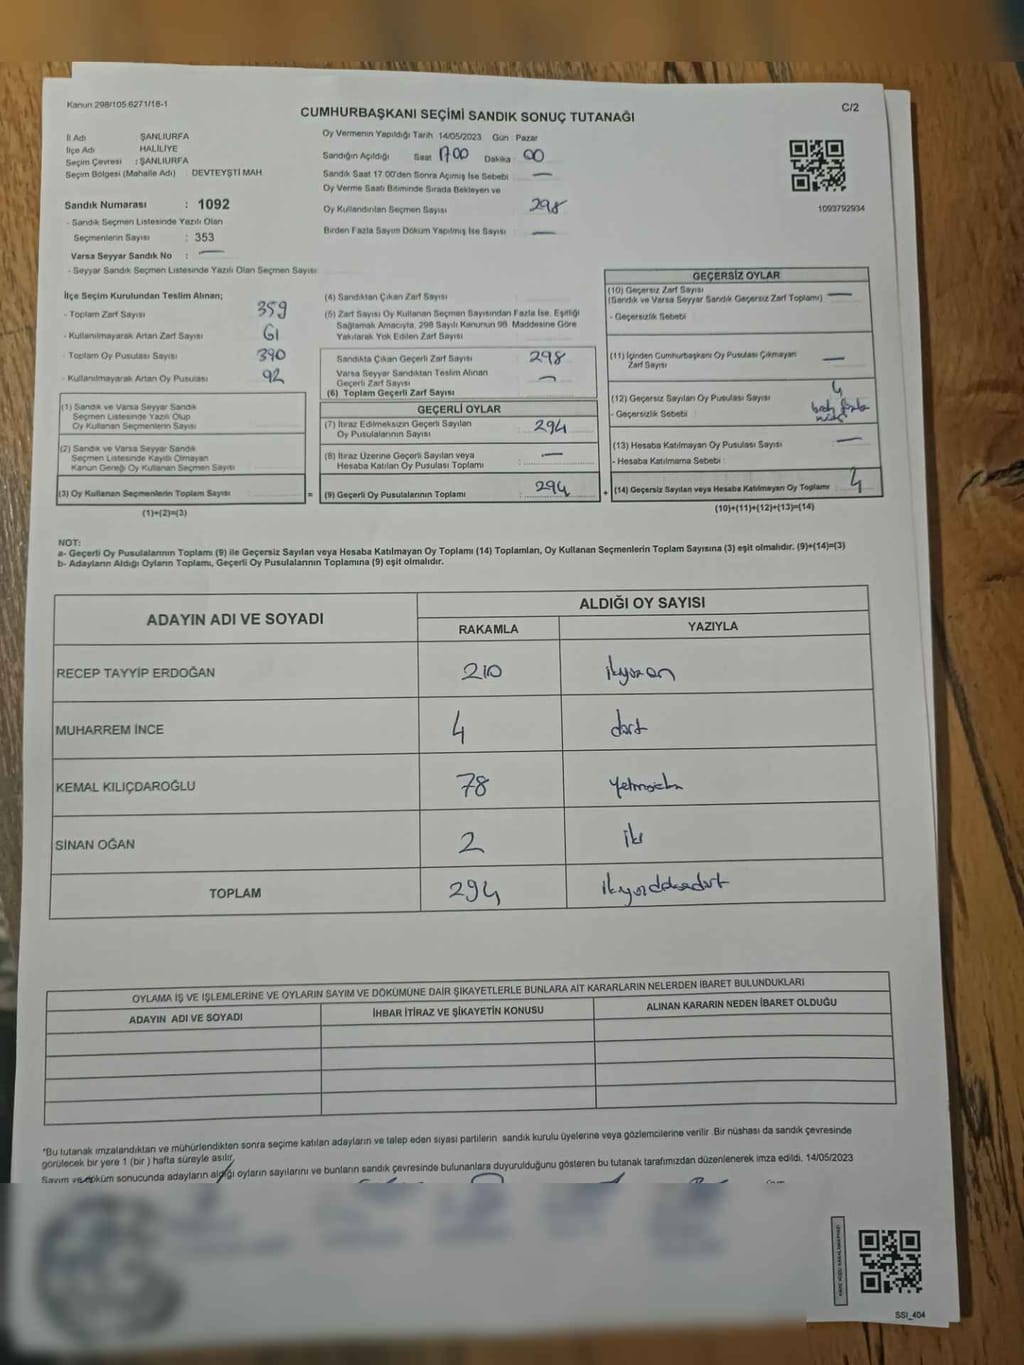 Kanun 298/105 6271/18-1
C/2
CUMHURBAŞKANI SEÇİMİ SANDIK SONUÇ TUTANAĞI
İl Adı ŞANLIURFA
İlçe Adı HALİLİYE
Seçim Çevresi : ŞANLIURFA
Seçim Bölgesi (Mahalle Adı) : DEVTEYŞTİ MAH
Sandık Numarası : 1092
- Sandık Seçmen Listesinde Yazılı Olan
Seçmenlerin Sayısı : 353
Varsa Seyyar Sandık No : —
- Seyyar Sandık Seçmen Listesinde Yazılı Olan Seçmen Sayısı
Oy Vermenin Yapıldığı Tarih 14/05/2023 Gün : Pazar
Sandığın Açıldığı Saat 17 00 Dakika : 00
Sandık Saat 17 00'den Sonra Açımış İse Sebebi : —
Oy Verme Saati Bitiminde Sırada Bekleyen ve
Oy Kullandırılan Seçmen Sayısı 298
Birden Fazla Sayım Döküm Yapılmış İse Sayısı : —
1093792934
İlçe Seçim Kurulundan Teslim Alınan;
- Toplam Zarf Sayısı : 359
- Kullanılmayarak Artan Zarf Sayısı : 61
- Toplam Oy Pusulası Sayısı : 390
- Kullanılmayarak Artan Oy Pusulası : 92
(1) Sandık ve Varsa Seyyar Sandık
Seçmen Listesinde Yazılı Olup
Oy Kullanan Seçmenlerin Sayısı
(2) Sandık ve Varsa Seyyar Sandık
Seçmen Listesinde Kayıtlı Olmayan
Kanun Gereği Oy Kullanan Seçmen Sayısı
(3) Oy Kullanan Seçmenlerin Toplam Sayısı =
(1)+(2)=(3)
(4) Sandıktan Çıkan Zarf Sayısı
(5) Zarf Sayısı Oy Kullanan Seçmen Sayısından Fazla İse, Eşitliği
Sağlamak Amacıyla, 298 Sayılı Kanunun 98 Maddesine Göre
Yakılarak Yok Edilen Zarf Sayısı
Sandıkta Çıkan Geçerli Zarf Sayısı : 298
Varsa Seyyar Sandıktan Teslim Alınan
Geçerli Zarf Sayısı : —
(6) Toplam Geçerli Zarf Sayısı
GEÇERLİ OYLAR
(7) İtiraz Edilmeksizin Geçerli Sayılan
Oy Pusulalarının Sayısı : 294
(8) İtiraz Üzerine Geçerli Sayılan veya
Hesaba Katılan Oy Pusulası Toplamı : —
(9) Geçerli Oy Pusulalarının Toplamı : 294 +
GEÇERSİZ OYLAR
(10) Geçersiz Zarf Sayısı
(Sandık ve Varsa Seyyar Sandık Geçersiz Zarf Toplamı) : —
- Geçersizlik Sebebi :
(11) İçinden Cumhurbaşkanı Oy Pusulası Çıkmayan
Zarf Sayısı : —
(12) Geçersiz Sayılan Oy Pusulası Sayısı : 4
- Geçersizlik Sebebi :
(13) Hesaba Katılmayan Oy Pusulası Sayısı : —
- Hesaba Katılmama Sebebi :
(14) Geçersiz Sayılan veya Hesaba Katılmayan Oy Toplamı : 4
(10)+(11)+(12)+(13)=(14)
NOT:
a- Geçerli Oy Pusulalarının Toplamı (9) ile Geçersiz Sayılan veya Hesaba Katılmayan Oy Toplamı (14) Toplamları, Oy Kullanan Seçmenlerin Toplam Sayısına (3) eşit olmalıdır. (9)+(14)=(3)
b- Adayların Aldığı Oyların Toplamı, Geçerli Oy Pusulalarının Toplamına (9) eşit olmalıdır.
ADAYIN ADI VE SOYADI ALDIĞI OY SAYISI
RAKAMLA YAZIYLA
RECEP TAYYİP ERDOĞAN 210 ikyüzon
MUHARREM İNCE 4 dört
KEMAL KILIÇDAROĞLU 78 yetmişsekiz
SİNAN OĞAN 2 iki
TOPLAM 294 ikiyüzdoksandört
OYLAMA İŞ VE İŞLEMLERİNE VE OYLARIN SAYIM VE DÖKÜMÜNE DAİR ŞİKAYETLERLE BUNLARA AİT KARARLARIN NELERDEN İBARET BULUNDUKLARI
ADAYIN ADI VE SOYADI İHBAR İTİRAZ VE ŞİKAYETİN KONUSU ALINAN KARARIN NEDEN İBARET OLDUĞU
*Bu tutanak imzalandıktan ve mühürlendikten sonra seçime katılan adayların ve talep eden siyasi partilerin sandık kurulu üyelerine veya gözlemcilerine verilir .Bir nüshası da sandık çevresinde
görülecek bir yere 1 (bir ) hafta süreyle asılır.
Sayım ve döküm sonucunda adayların aldığı oyların sayılarını ve bunların sandık çevresinde bulunanlara duyurulduğunu gösteren bu tutanak tarafımızdan düzenlenerek imza edildi. 14/05/2023
SSI_404